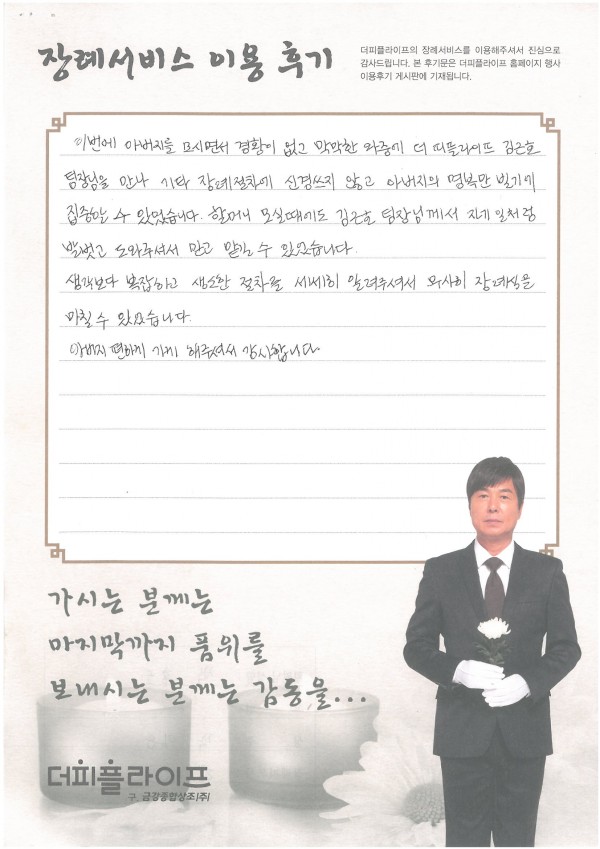 장례서비스 이용 후기
더피플라이프의 장례서비스를 이용해주셔서 진심으로
감사드립니다. 본 후기문은 더피플라이프 홈페이지 행사
이용후기 게시판에 기재됩니다.
이번에 아버지를 모시면서 경황이 없고 막막한 와중에 더 피플라이프 김근호
팀장님을 만나 기타 장례절차에 신경쓰지 않고 아버지의 명복만 빌기에
집중할 수 있었습니다. 할머니 모실때에도 김근호 팀장님께서 자기 일처럼
발벗고 도와주셔서 믿고 맡길 수 있었습니다.
생각보다 복잡하고 생소한 절차를 세세히 알려주셔서 무사히 장례식을
마칠 수 있었습니다.
아버지 편하게 가게 해주셔서 감사합니다.
가시는 분께는
마지막까지 품위를
보내시는 분께는 감동을...
더피플라이프
구. 금강종합상조(주)